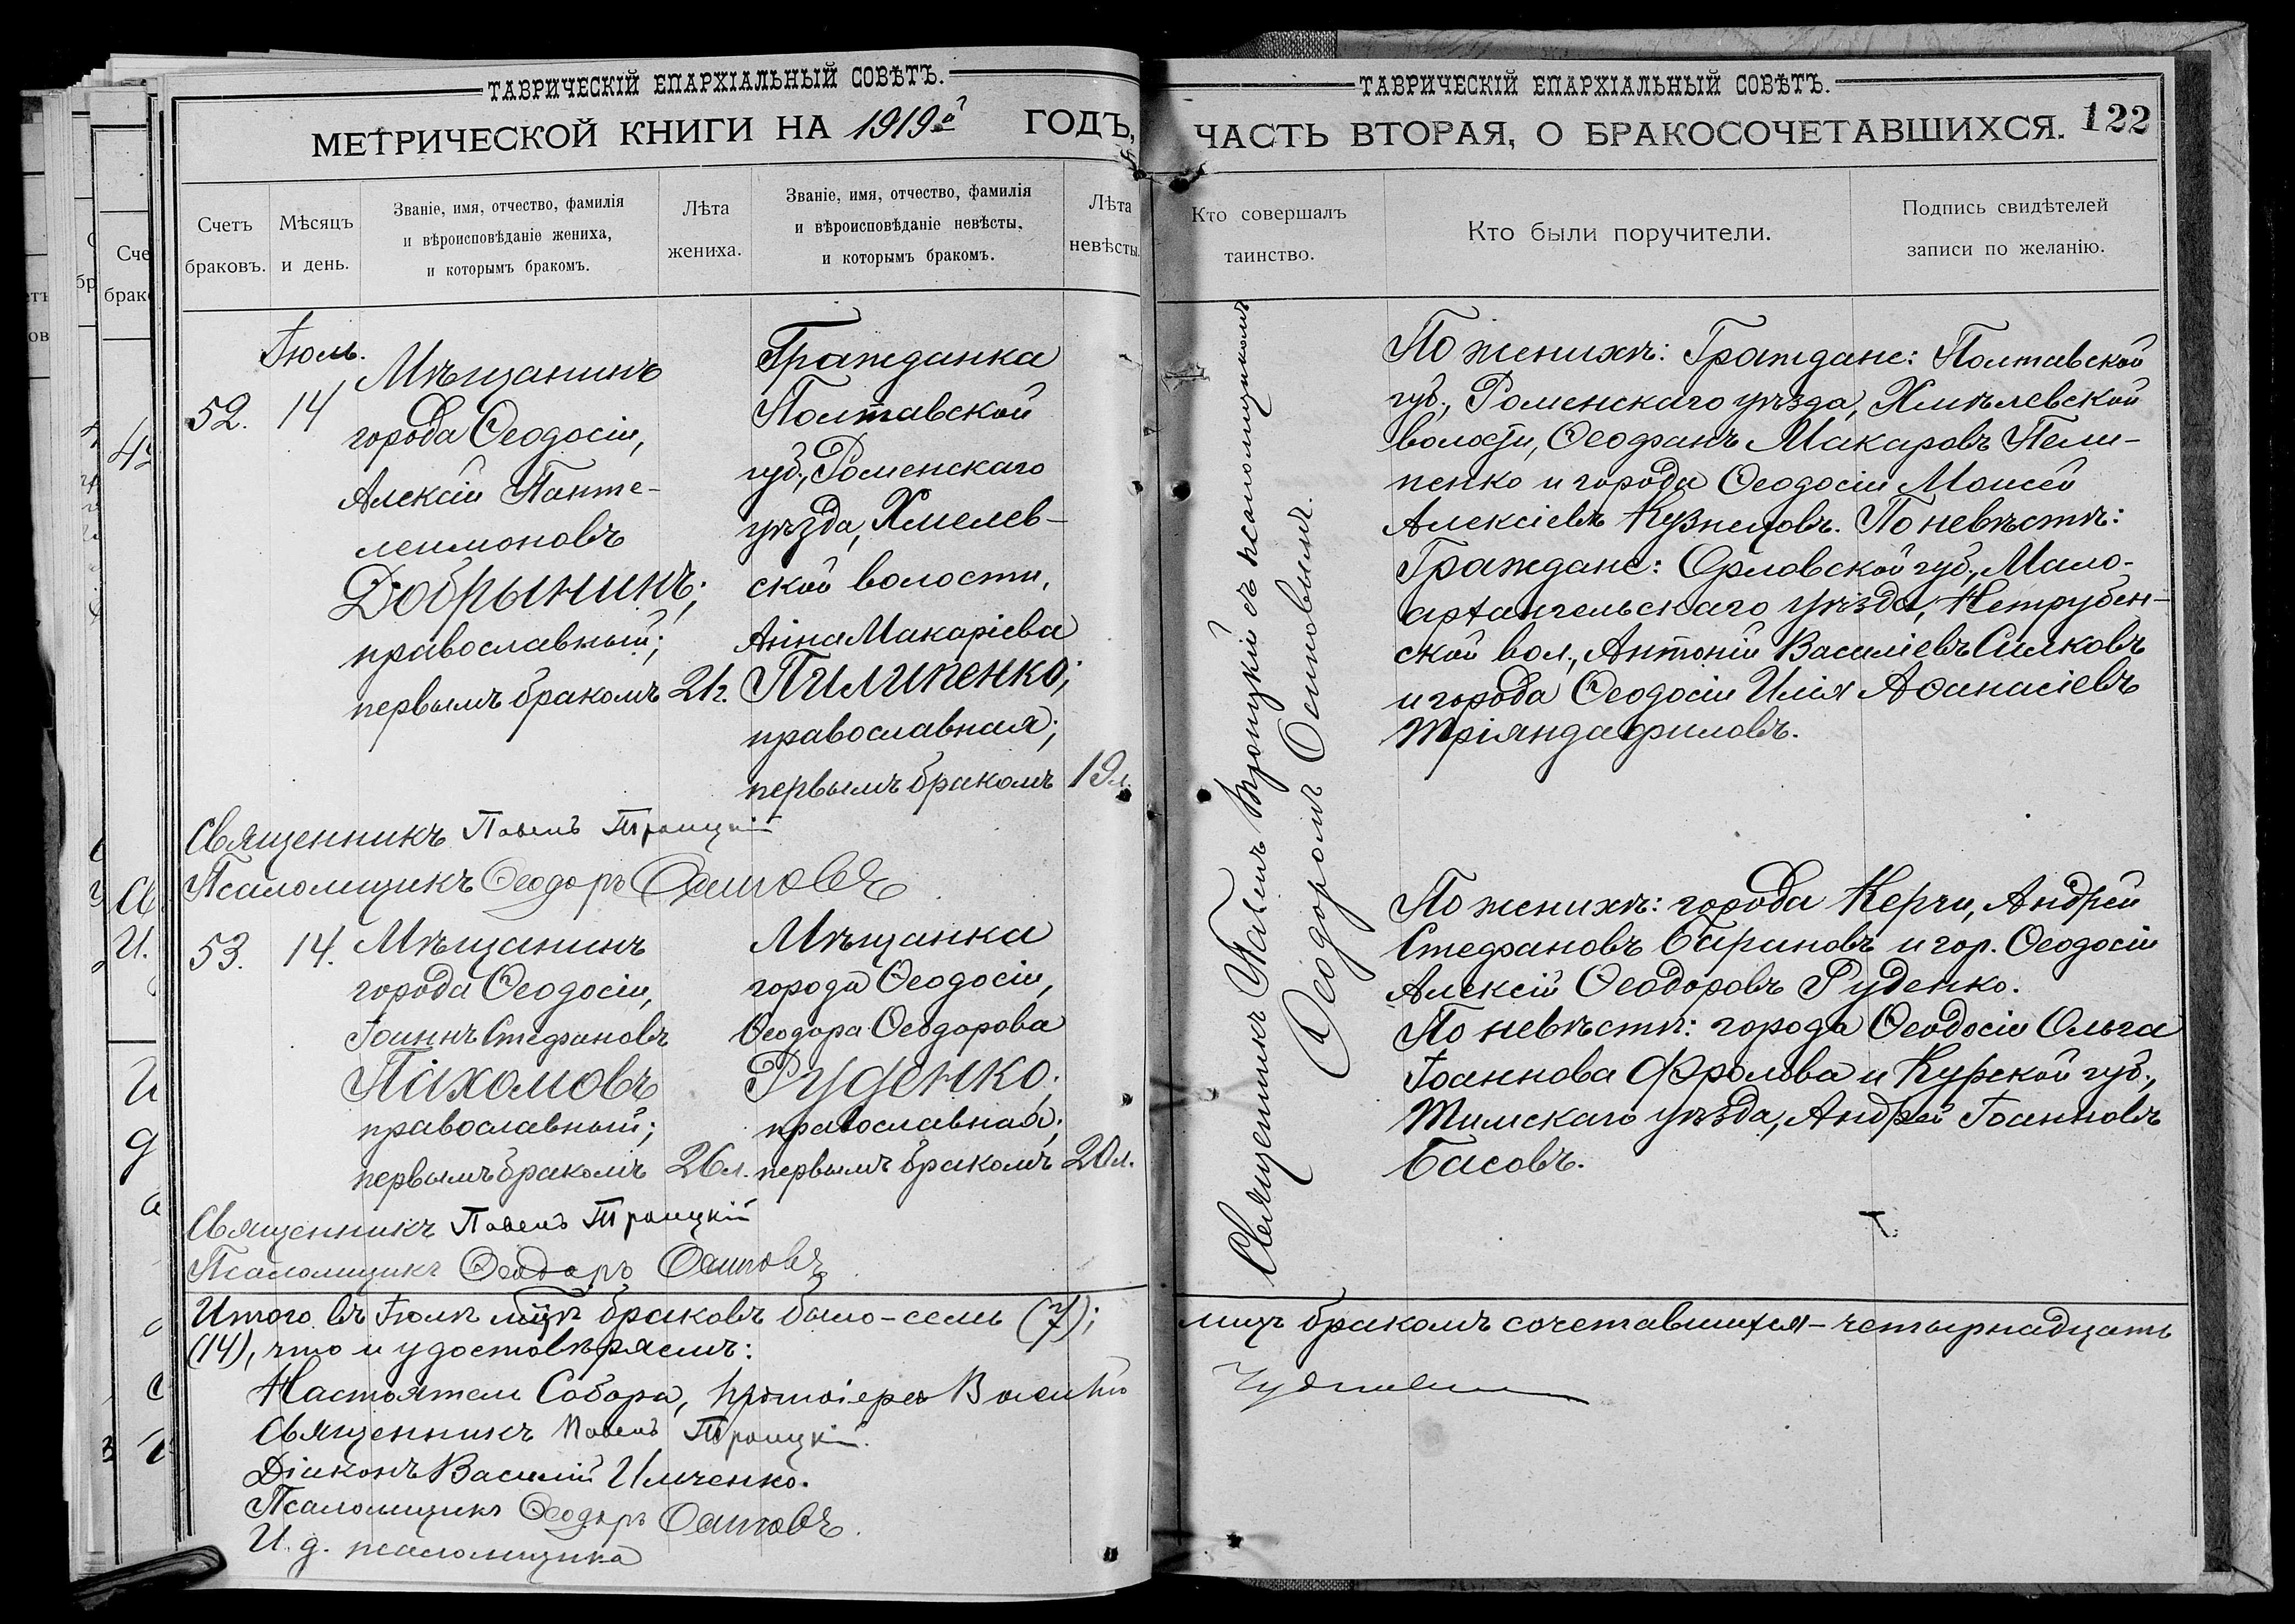 ТАВРИЧЕСКІЙ ЕПАРХІАЛЬНЫЙ СОВѢТЪ.
МЕТРИЧЕСКОЙ КНИГИ НА 1919й ГОДЪ,
Счетъ браковъ.
Мѣсяцъ и день.
Званіе, имя, отчество, фамилія
и вѣроисповѣданіе жениха,
и которымъ бракомъ.
Лѣта
жениха.
Званіе, имя, отчество, фамилія
и вѣроисповѣданіе невѣсты,
и которымъ бракомъ.
Лѣта
невѣсты.
Іюль.
52.
14
Мѣщанинъ
города Ѳеодосіи,
Алексій Панте-
леимоновъ
Добрынинъ;
православный;
первымъ бракомъ
21г.
Гражданка
Полтавской
губ., Роменскаго
уѣзда, Хмелев-
ской волости,
Анна Макаріева
Пилипенко;
православная;
первымъ бракомъ
19л.
Священникъ Павелъ Троицкій
Псаломщикъ Ѳеодоръ Осиповъ
53.
14.
Мѣщанинъ
города Ѳеодосіи,
Іоаннъ Стефановъ
Пахомовъ
православный;
первымъ бракомъ
26л.
Мѣщанка
города Ѳеодосіи,
Ѳеодора Ѳеодорова
Руденко;
православная;
первымъ бракомъ
20л.
Священникъ Павелъ Троицкій
Псаломщикъ Ѳеодоръ Осиповъ
Итого въ Іюлѣ мцѣ браковъ было - семь (7);
(14), что и удостовѣряемъ:
Настоятель Собора, протоіерей Василій
Священникъ Павелъ Троицкій.
Діаконъ Василій Ильченко.
Псаломщикъ Ѳеодоръ Осиповъ.
И. д. псаломщика
ТАВРИЧЕСКІЙ ЕПАРХІАЛЬНЫЙ СОВѢТЪ.
ЧАСТЬ ВТОРАЯ, О БРАКОСОЧЕТАВШИХСЯ.
122
Кто совершалъ
таинство.
Кто были поручители.
Подпись свидѣтелей
записи по желанію.
Священникъ Павелъ Троицкій съ псаломщикомъ
Ѳеодоромъ Осиповымъ.
По женихѣ: Граждане: Полтавской
губ., Роменскаго уѣзда, Хмѣлевской
волости, Ѳеофанъ Макаровъ Пели-
пенко и города Ѳеодосіи Моисей
Алексіевъ Кузнецовъ. По невѣстѣ:
Граждане: Орловской губ., Мало-
архангельскаго уѣзда, Нетрубен-
ской вол., Антоній Василіевъ Силковъ
и города Ѳеодосіи Илія Аѳанасіевъ
Тріандафиловъ.
По женихѣ: города Керчи, Андрей
Стефановъ Барановъ и гор. Ѳеодосіи
Алексій Ѳеодоровъ Руденко.
По невѣстѣ: города Ѳеодосіи Ольга
Іоаннова Фролова и Курской губ.,
Тимскаго уѣзда, Андрей Іоанновъ
Басовъ.
лицъ бракомъ сочетавшихся - четырнадцать